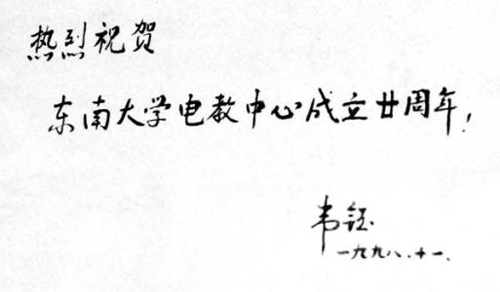 热烈祝贺
东南大学电教中心成立廿周年!
韦钰
一九九八.十一.